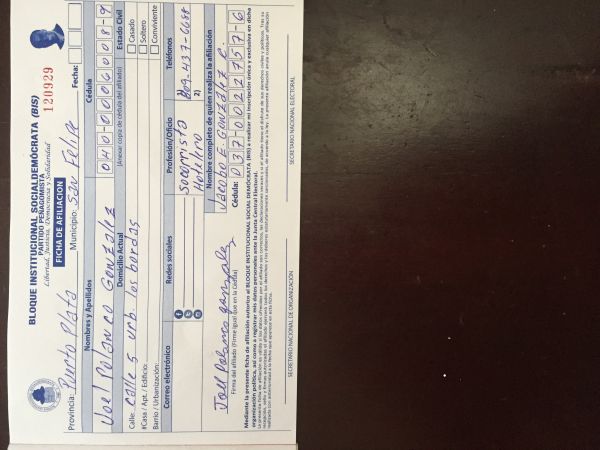 BLOQUE INSTITUCIONAL SOCIALDEMÓCRATA (BIS)
PARTIDO PEÑAGOMISTA
Libertad, Justicia, Democracia y Solidaridad
120929
FICHA DE AFILIACION
Provincia: Puerto Plata Municipio: San Felipe Fecha:
Nombres y Apellidos Cédula
Joel Polanco Gonzalez 040-0006008-9
(Anexar copia de cédula del afiliado)
Domicilio Actual Estado Civil
Calle: calle 5 urb. los bordas Casado
#Casa / Apt. / Edificio: Soltero
Barrio / Urbanización: Conviviente
Correo electrónico Redes sociales Profesión/Oficio Teléfonos
Socorrista 809-437-6688
Hotelero 2)
Joel Polanco gonzalez
Firma del afiliado (Firme igual que en la Cédula)
Nombre completo de quien realiza la afiliación
Jacobo E. Gonzalez C.
Cédula: 037-0022757-6
Mediante la presente ficha de afiliación autorizo al BLOQUE INSTITUCIONAL SOCIAL DEMÓCRATA (BIS) a realizar mi inscripción única y exclusiva en dicha
organización política, así como a registrar mis datos personales ante la Junta Central Electoral.
SECRETARIO NACIONAL DE ORGANIZACIÓN SECRETARIO NACIONAL ELECTORAL